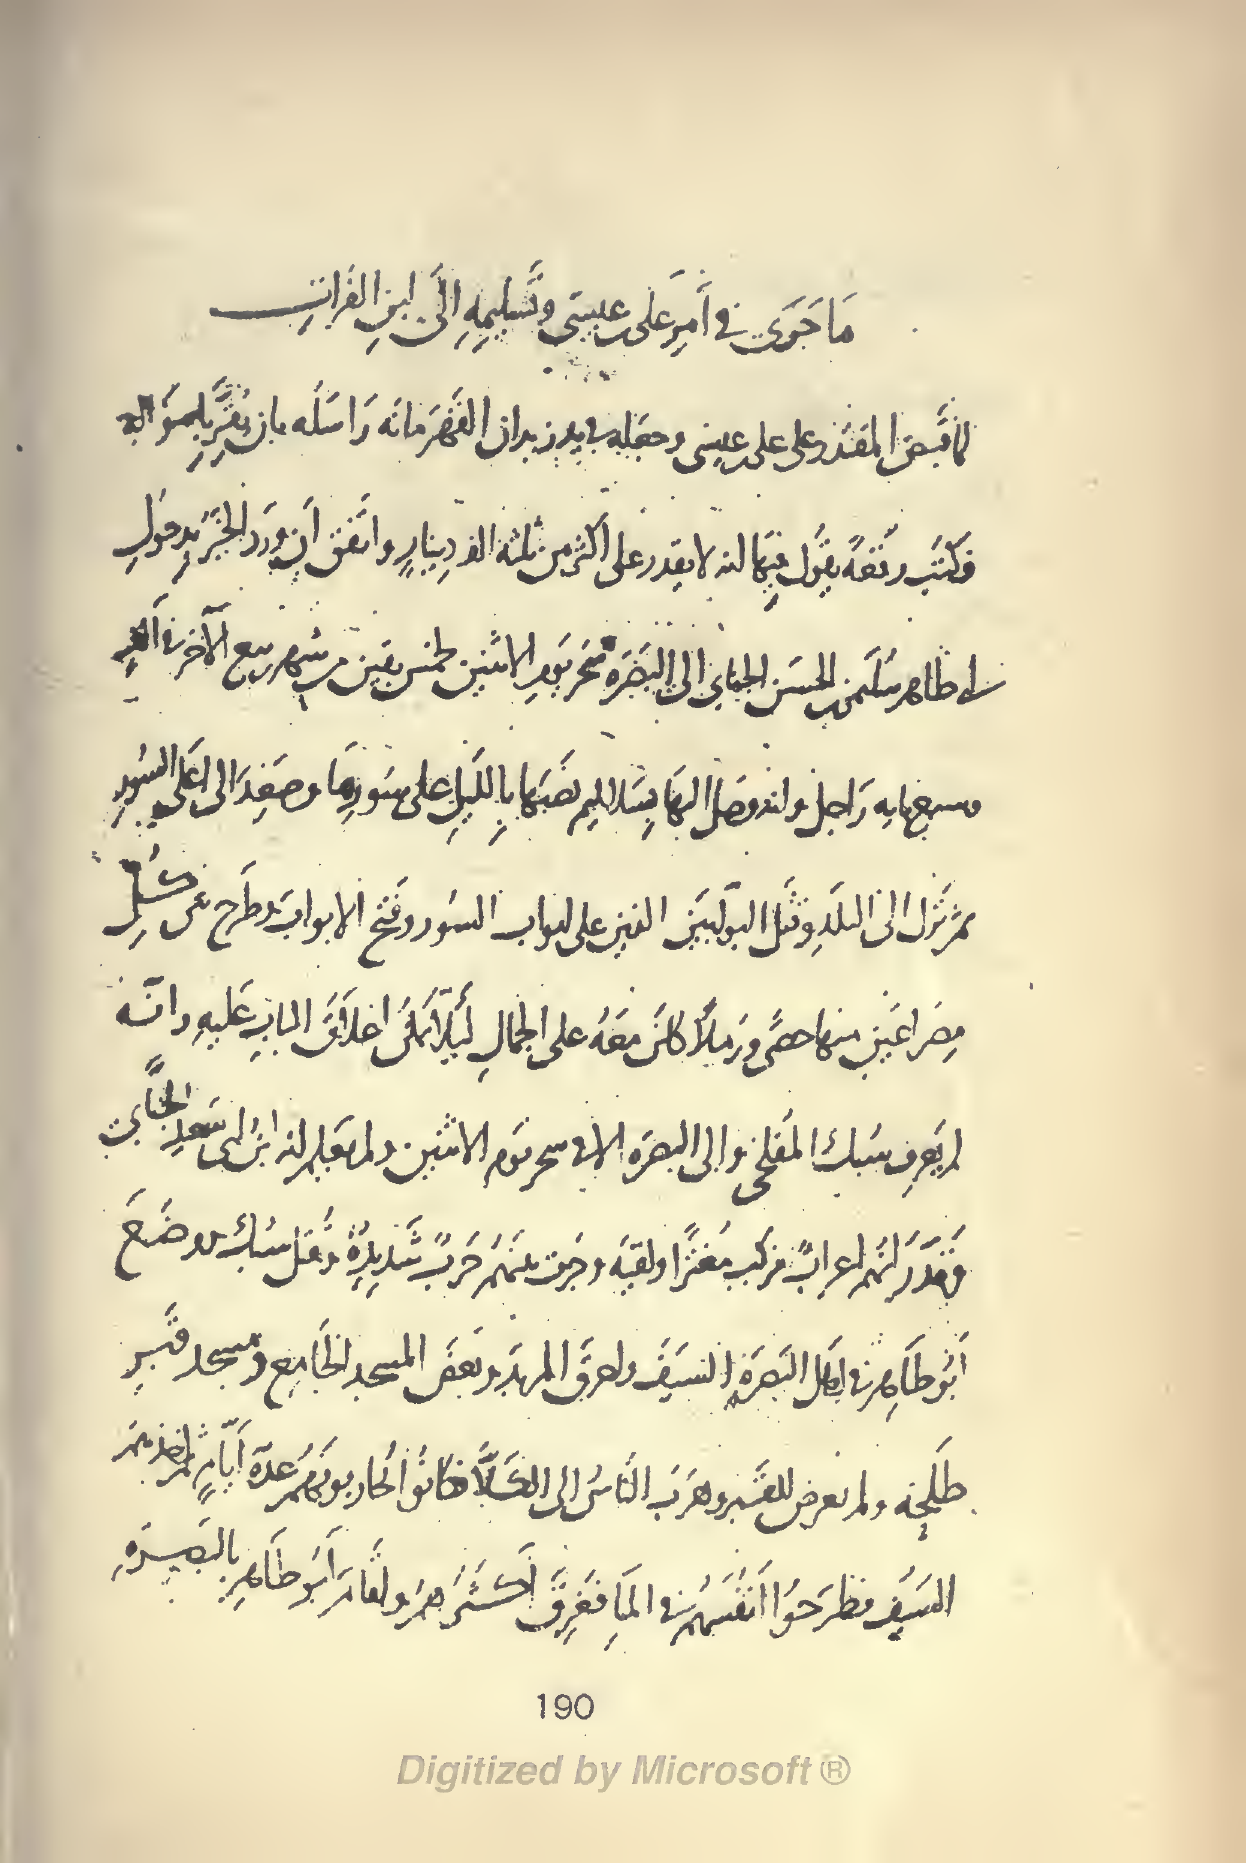 ما جَرَى في أَمرِ عَلى بن عيسَى وتَسليمِهِ الَى ابنِ الفُراتِ
لما قَبَضَ المقتَدر على على بن عيسى وجعَله في يد زيدان القَهرَمانَه رَاسَلَه بان يُقِرَّ باموَاله
فكتَبَ رقعَةً يقُول فيها انه لا يقدر على اكثر من ثلثة الف دِينارٍ واتفق ان ورَد الخبَرُ بدخولِ
ابى طاهر سُليمن بن الحسَن الجنابى الى البَصْرَة سَحَر يَومِ الاثنين لخمس بقين من شهر ربيع الآخر في الفٍ
وسبع مايه رَاجل وانه وصَل اليهَا بسَلاليم نصَبَها بالليلِ على سُورهَا وصَعِدَ الى اعلى السُورِ
ثم نزَل الى البلَدِ وقتَل البوابين الذين على ابواب السُور وفتَح الابوابَ وطَرح بين كُلِّ
مِصراعَين منها حصًى ورَملاً كانَ معَهُ على الجمالِ لَيلاّ يمكن اغلاقَ البابِ عَليهِ وانّه
لم يَعرِف سُبك المفلحى والى البصرَه الا في سحر يَوم الاثنين ولم يعلم انه ابن ابى سَعيدٍ الجنَّابىّ
وقَدَّرَ انهم اعرابٌ فركب مُغترًّا ولقيَه وجرَت بينهم حَربٌ شديدةٌ وقتل سُبك ووضَعَ
أبُو طَاهِر في اهل البَصرَةِ السَيفَ واحرقَ المربدَ وبَعضَ المسجد الجامِع ومسجد قبرِ
طلحه ولم يعرض للقبر وهَرَبَ النَّاسُ الى الكَلّا فكانُوا يحاربونَهم عدّةَ أيّامٍ ثم اخذهم
السَيف فطرَحوُا أنفُسَهم في الماءِ فغَرِقَ أكثَرُهم واقَامَ أبُو طَاهِر بالبَصرَةِ
190
Digitized by Microsoft ®